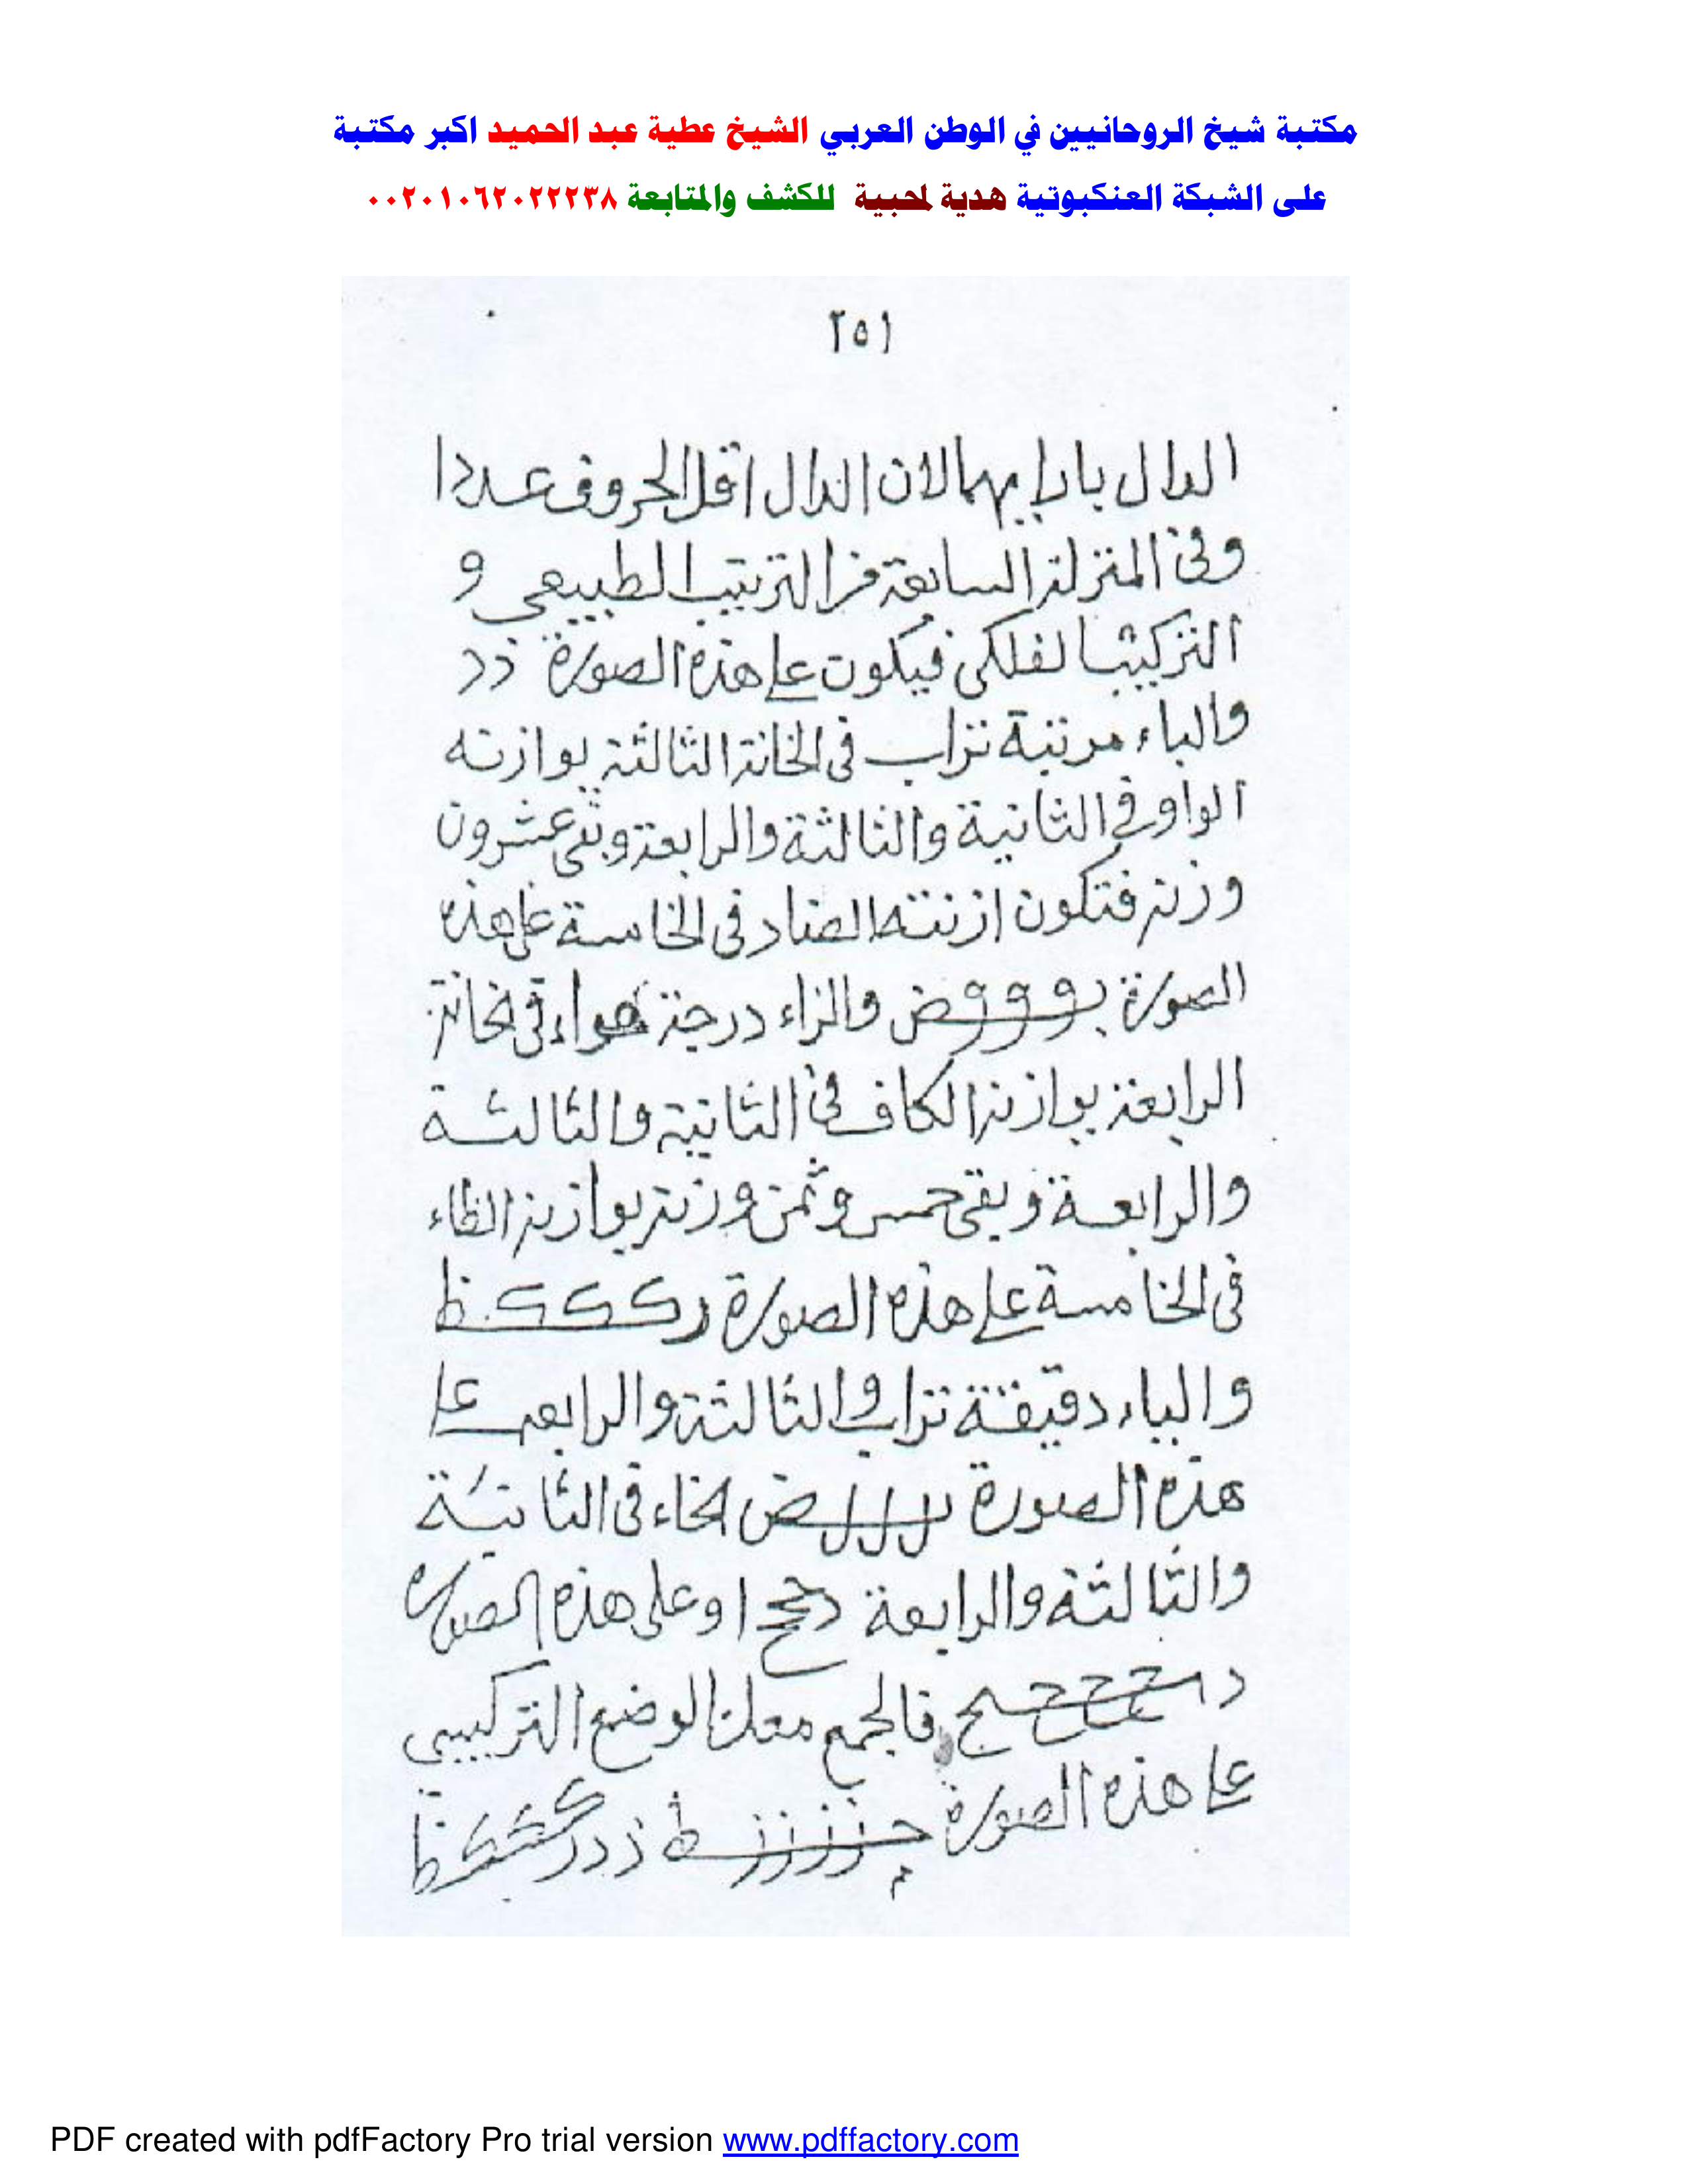 مكتبة شيخ الروحانيين في الوطن العربي الشيخ عطية عبد الحميد اكبر مكتبة
على الشبكة العنكبوتية هدية لمحبية للكشف والمتابعة ٠٠٢٠١٠٦٢٠٢٢٢٣٨
٢٥١
الدال بايا بهما لان الدال اقل الحروف عددا
وفي المنزلة السابعة من الترتيب الطبيعي و
التركيب الفلكي فيكون على هذه الصورة ذد
والباء مرتبة تراب في الخانة الثالثة يوازنه
الواو في الثانية والثالثة والرابعة وبقي عشرون
وزنة فتكون ازنته الضاد في الخامسة على هذه
الصورة بوووض والراء درجة هواء في خانة
الرابعة يوازنه الكاف في الثانية والثالثة
والرابعة وبقي خمس وثمن وزنة يوازنه الظاء
في الخامسة على هذه الصورة رككك ظ
والياء دقيقة تراب والثالثة والرابعة على
هذه الصورة يلللض لخاء في الثانية
والثالثة والرابعة دححح ا وعلى هذه الصورة
فالجمع معك الوضع التركيبي
على هذه الصورة
PDF created with pdfFactory Pro trial version www.pdffactory.com